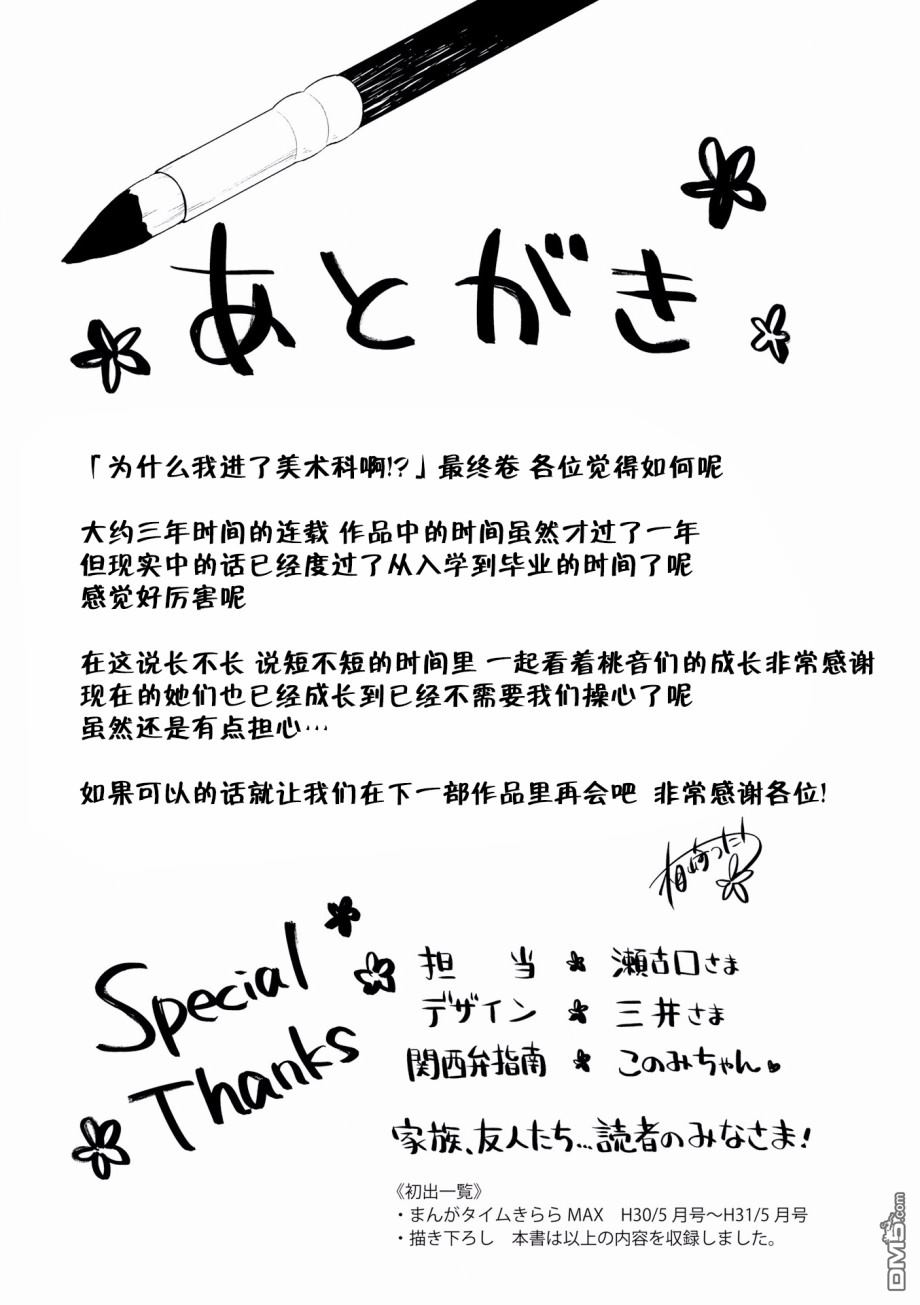 あとがき
「为什么我进了美术科啊!?」最终卷 各位觉得如何呢
大约三年时间的连载 作品中的时间虽然才过了一年
但现实中的话已经度过了从入学到毕业的时间了呢
感觉好厉害呢
在这说长不长 说短不短的时间里 一起看着桃音们的成长非常感谢
现在的她们也已经成长到已经不需要我们操心了呢
虽然还是有点担心…
如果可以的话就让我们在下一部作品里再会吧 非常感谢各位!
Special
Thanks
担当 瀬古口さま
デザイン 三井さま
関西弁指南 このみちゃん
家族、友人たち...読者のみなさま!
《初出一覧》
・まんがタイムきららMAX H30/5月号〜H31/5月号
・描き下ろし 本書は以上の内容を収録しました。
DM5.com